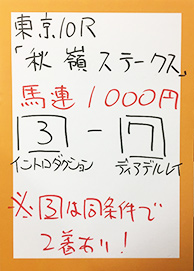 東京10R
「秋嶺ステークス」
馬連1000円
3-7
イントロダクション ディアデルレイ
※3は同条件で
2着あり!